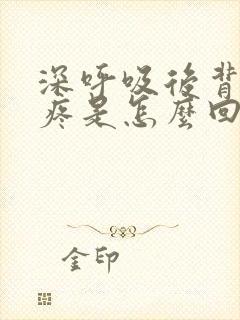 深呼吸後背
疼是怎麼回
金印